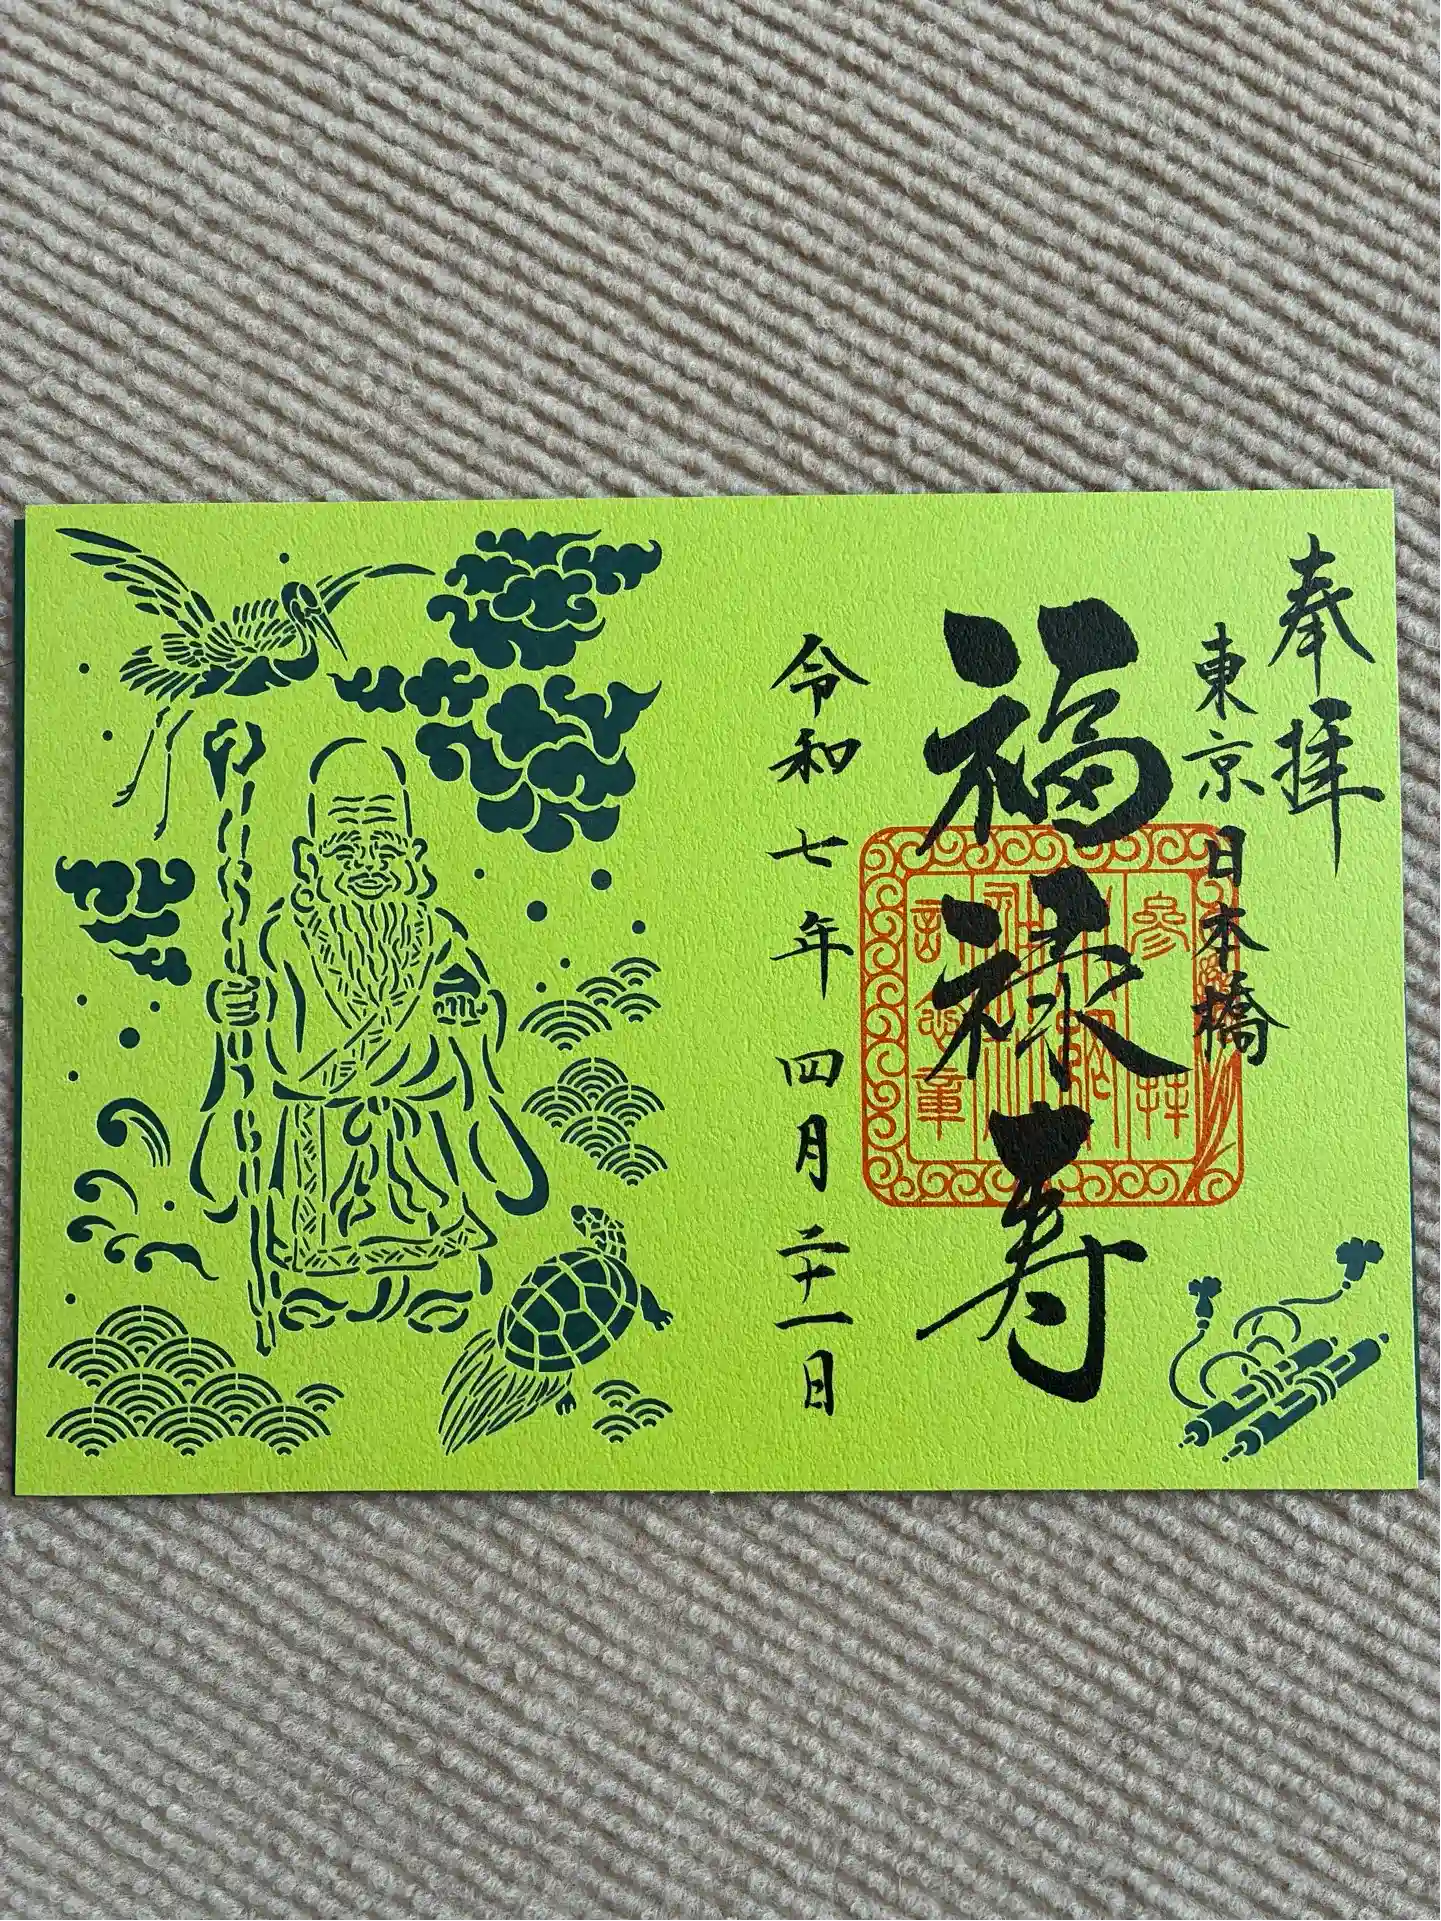 奉拝
東京日本橋
福禄寿
令和七年四月二十一日